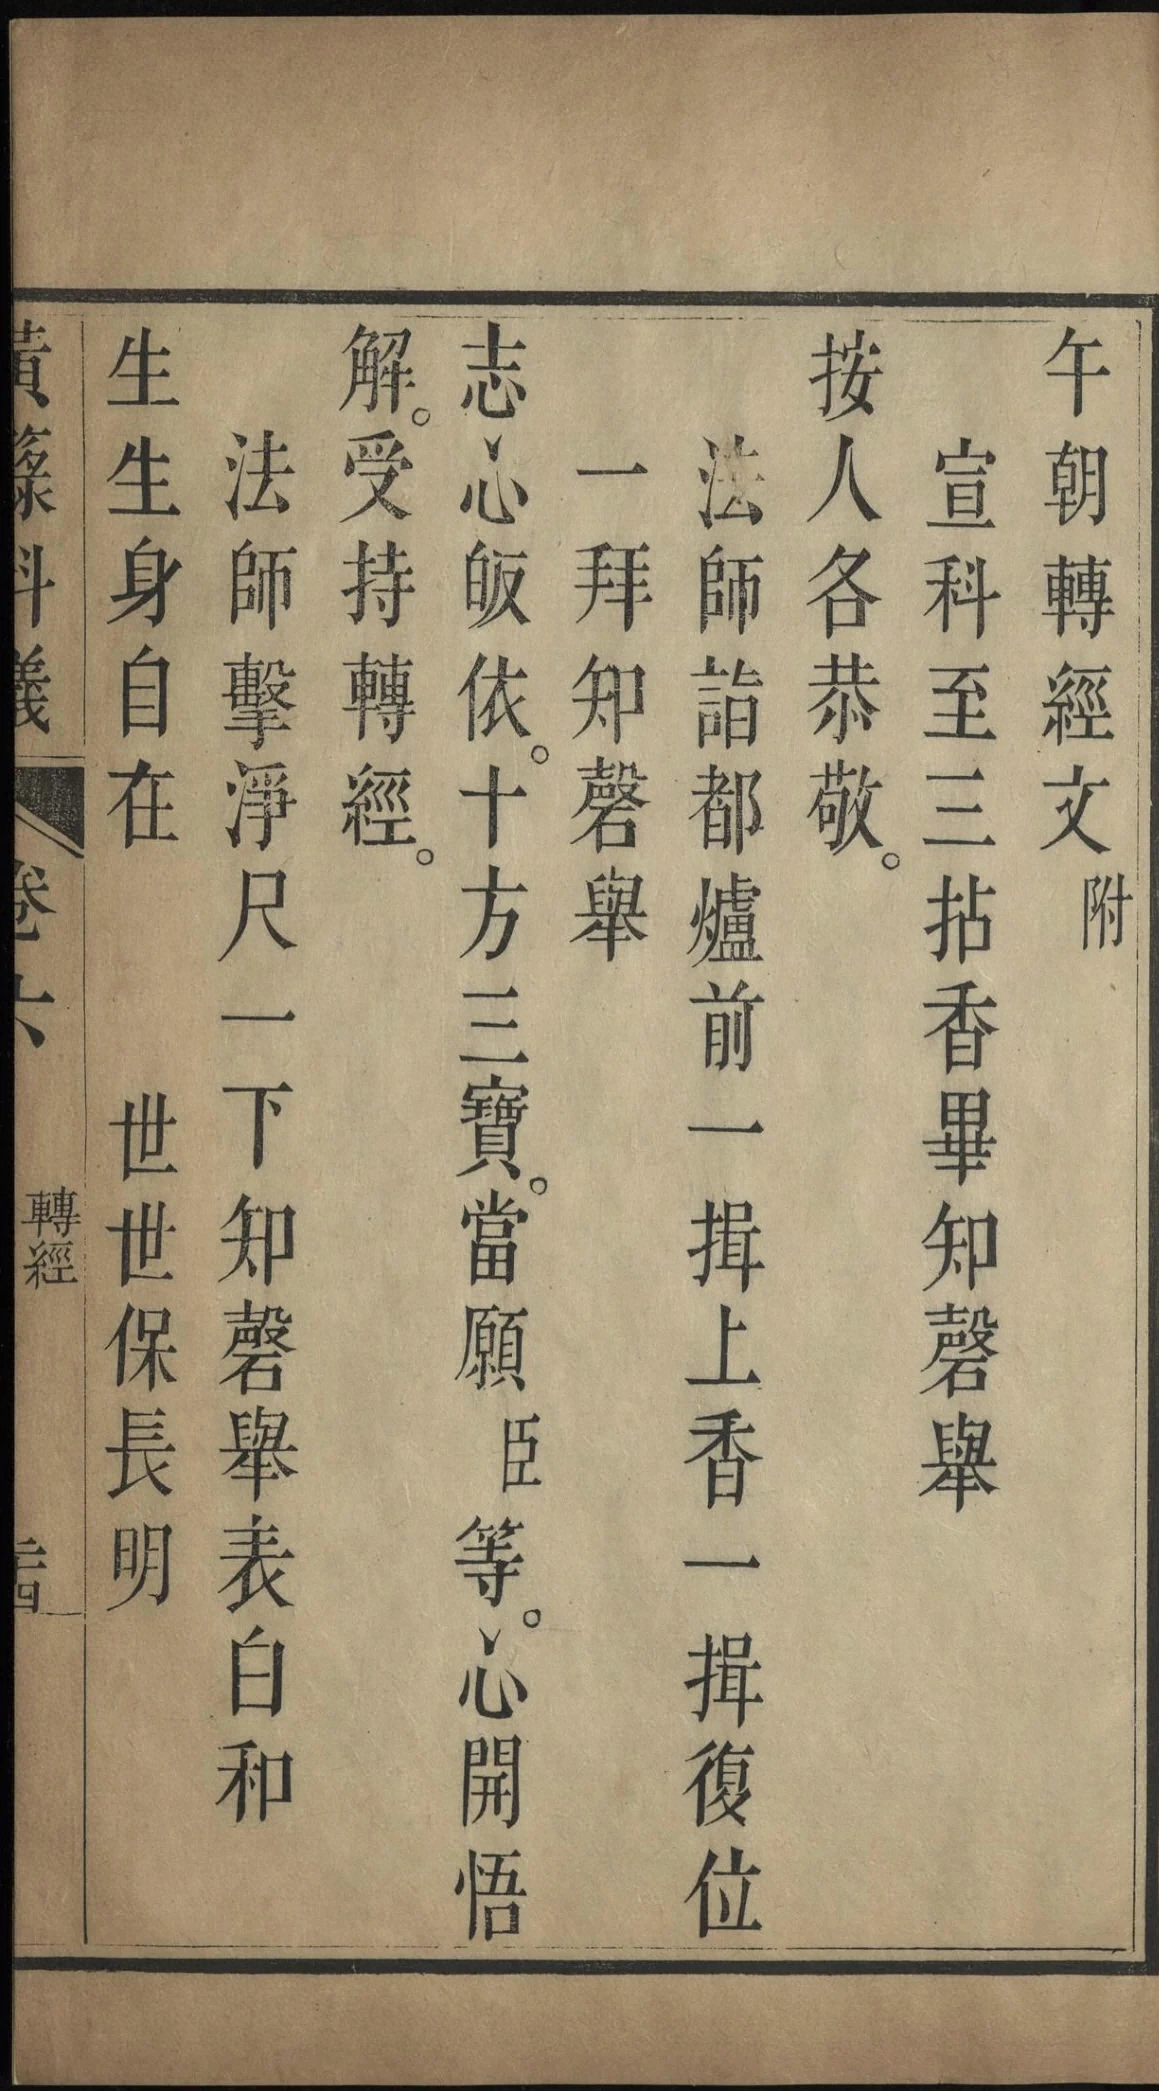 午朝轉經文附
宣科至三拈香畢知磬舉
按人各恭敬。
法師詣都爐前一揖上香一揖復位
一拜知磬舉
志心皈依。十方三寶。當願臣等。心開悟
解。受持轉經。
法師擊淨尺一下知磬舉表白和
生生身自在　世世保長明
黃籙科儀　卷六　轉經